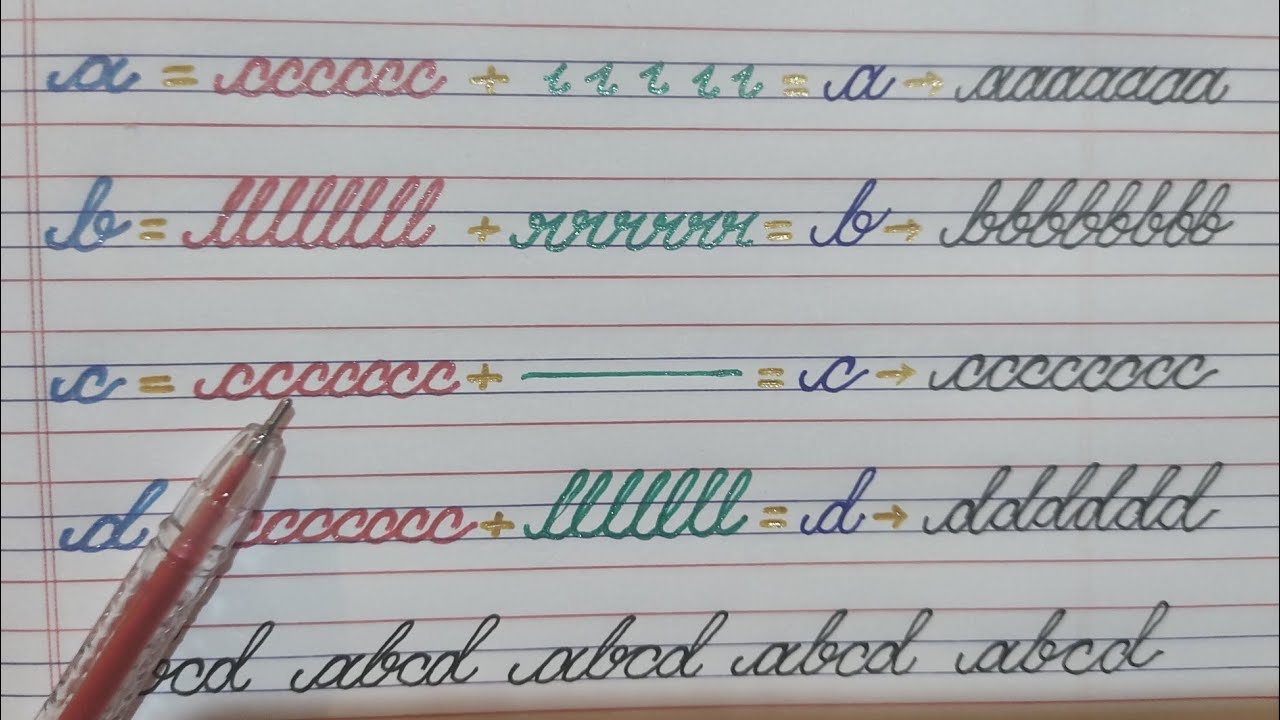 a = cccccc + ı ı ı ı ı = a → aaaaaaa
b = lllllll + rrrrrr = b → bbbbbbbb
c = ccccccc + — = c → cccccccc
d ccccccc + lllllll = d → dddddd
bcd abcd abcd abcd abcd